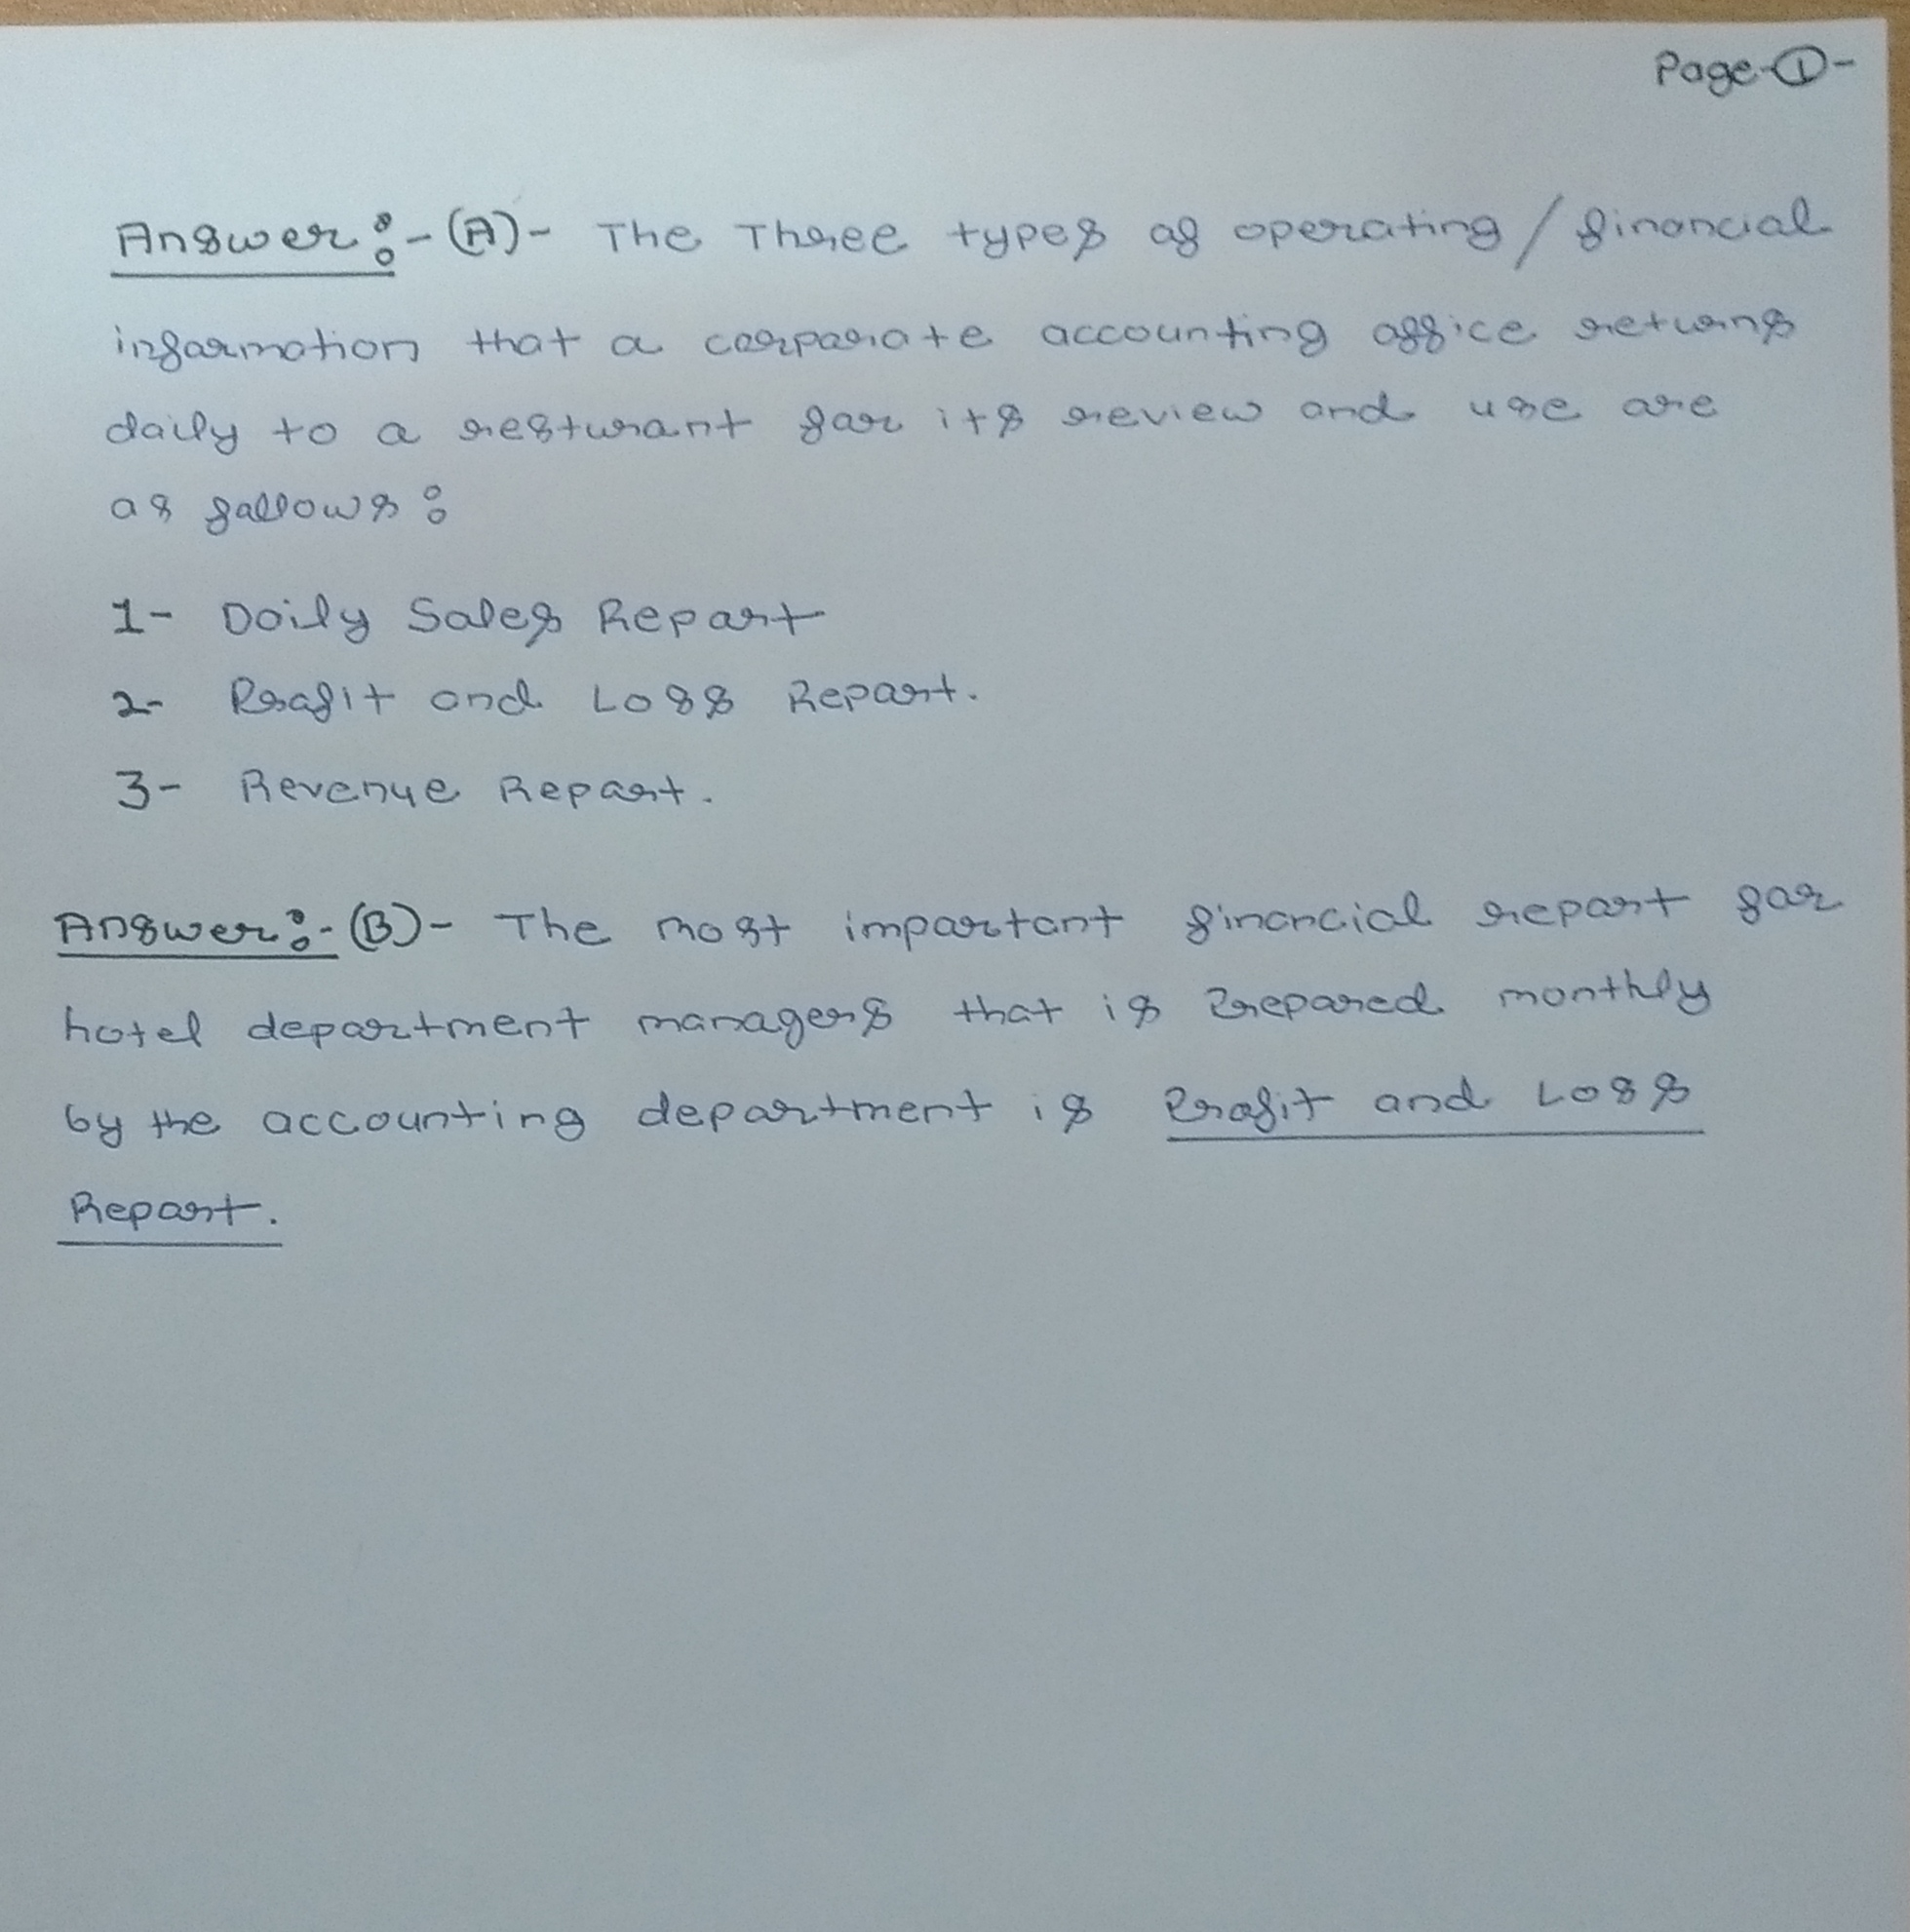 Page-①-
Answer:-(A)- The Three types of operating/financial
information that a corporate accounting office returns
daily to a resturant for its review and use are
as follows:
1- Daily Sales Report
2- Profit and Loss Report.
3- Revenue Report.
Answer:-(B)- The most important financial report for
hotel department managers that is Prepared monthly
by the accounting department is Profit and Loss
Report.